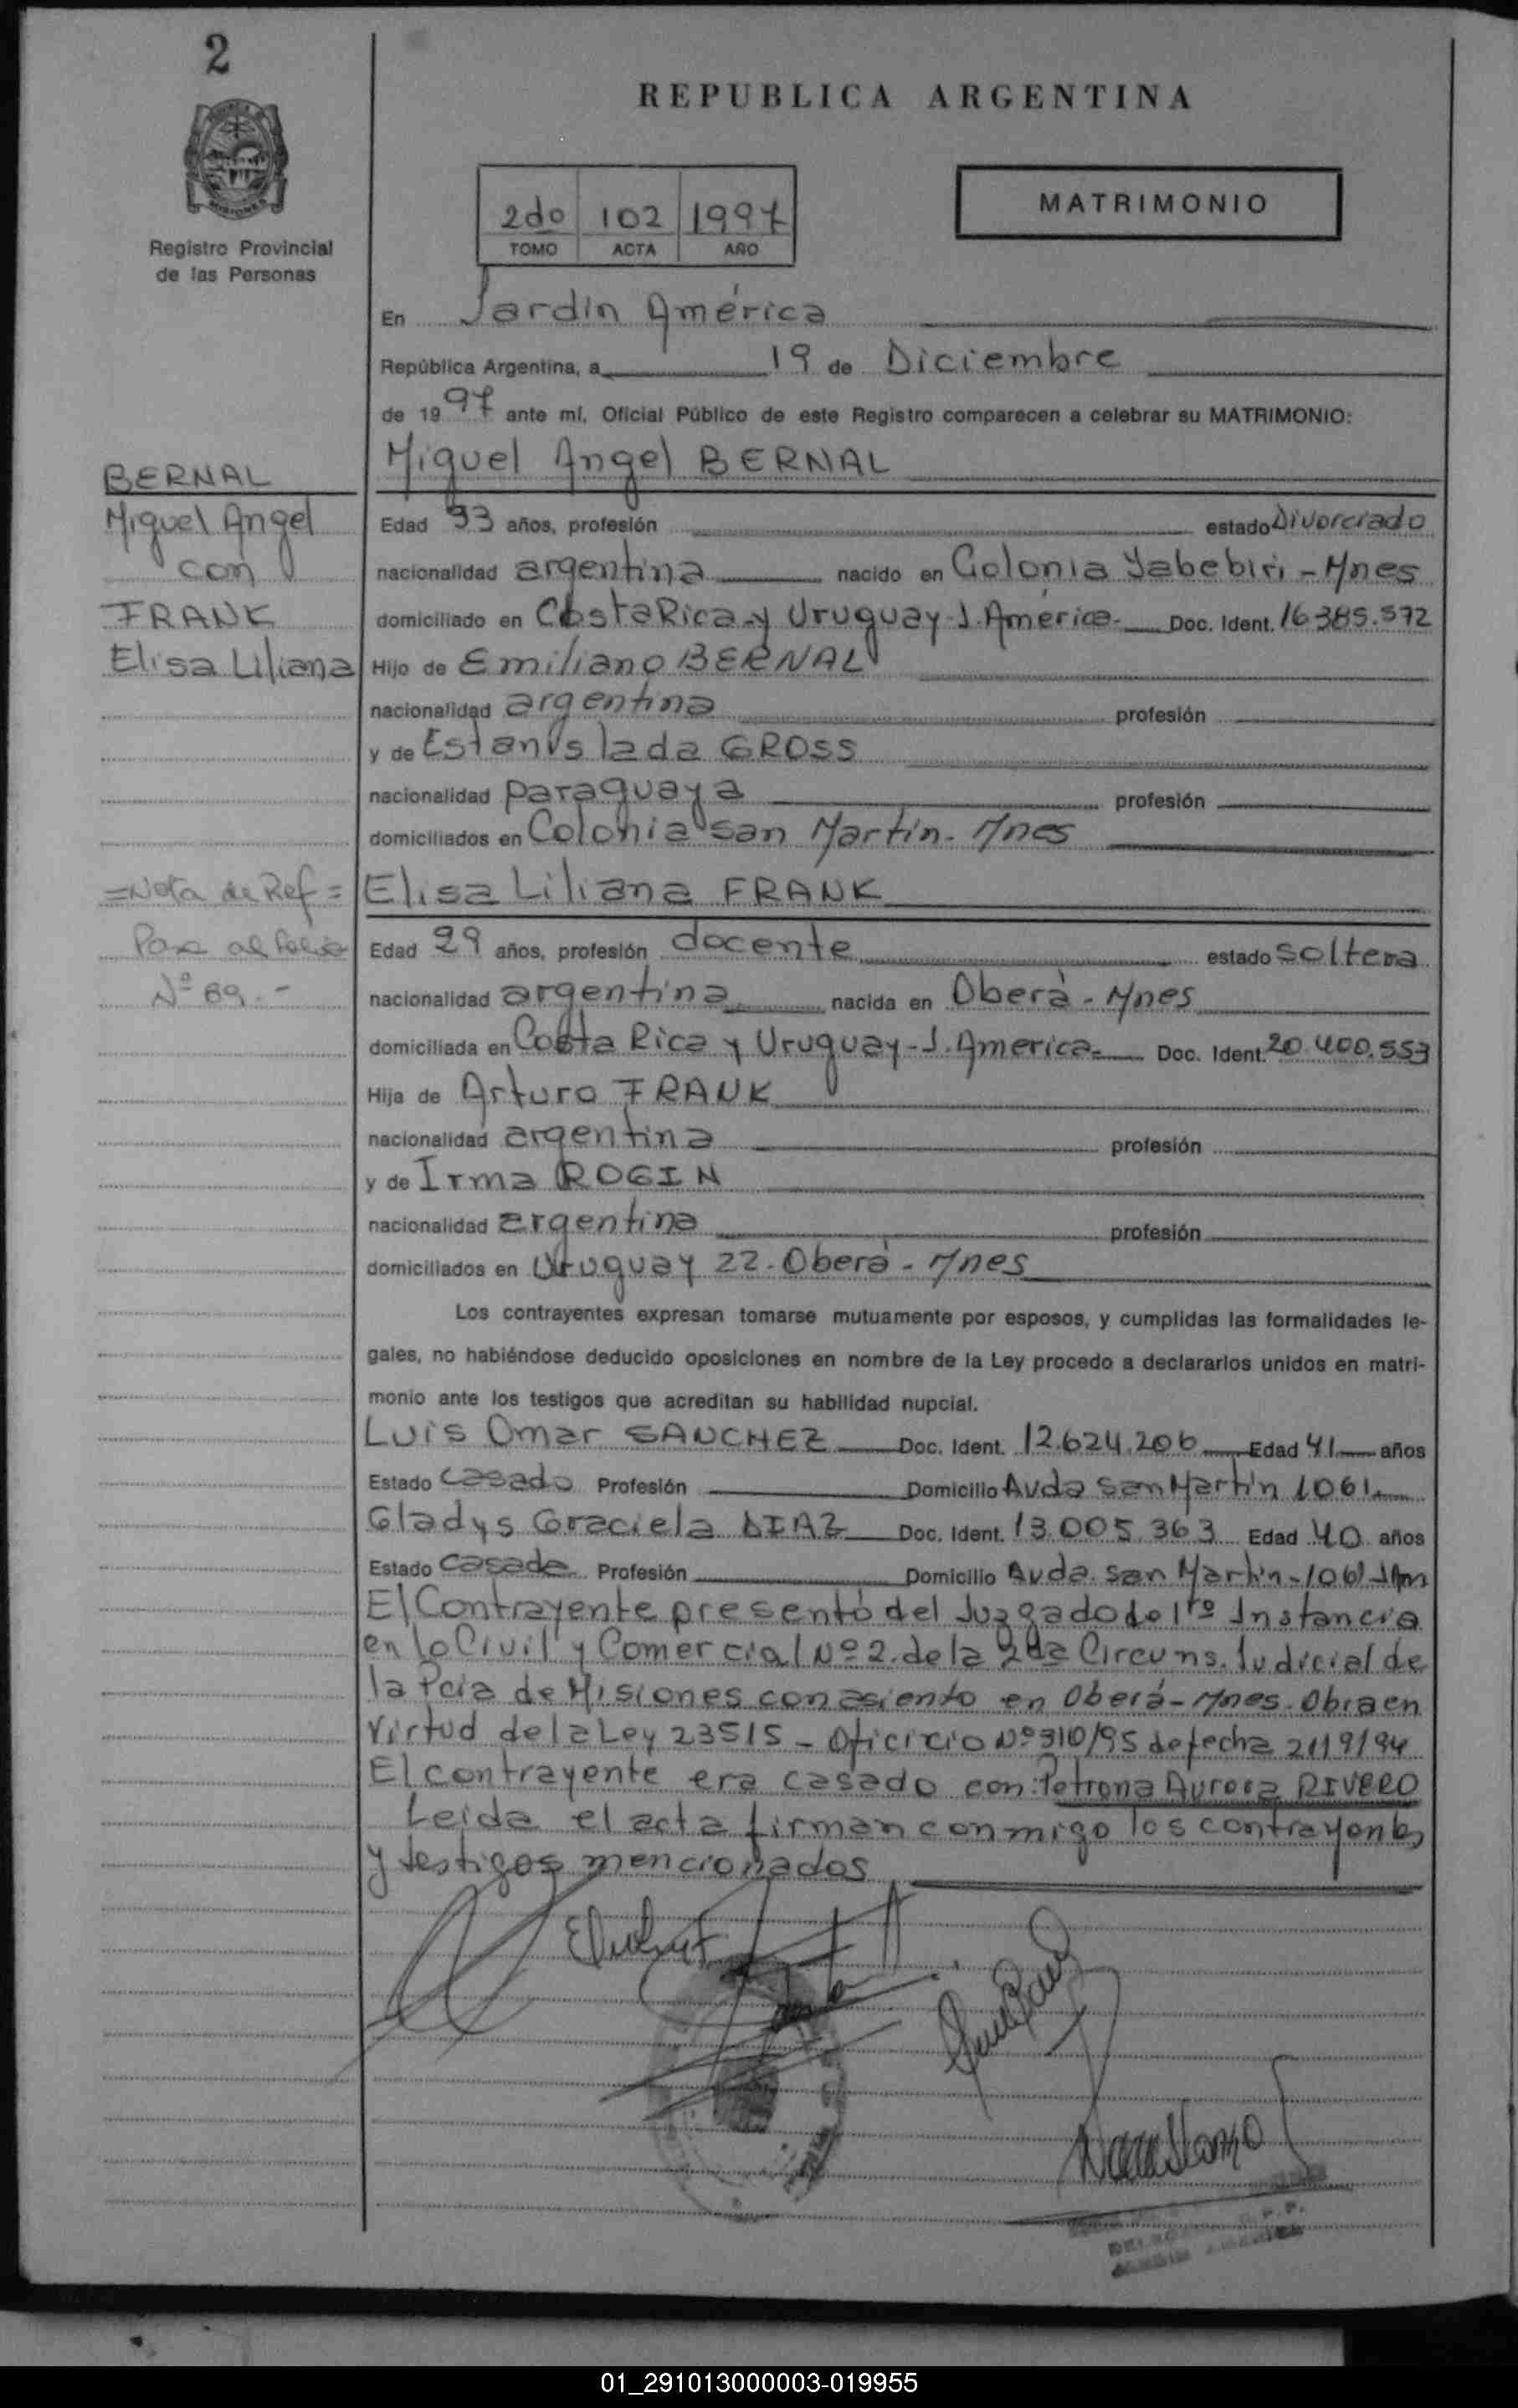 2
REPUBLICA ARGENTINA
MATRIMONIO
2do 102 1997
TOMO ACTA AÑO
Registro Provincial
de las Personas
En Jardín América
República Argentina, a 19 de Diciembre
de 1997 ante mí, Oficial Público de este Registro comparecen a celebrar su MATRIMONIO:
Miguel Angel BERNAL
BERNAL
Miguel Angel
con
FRANK
Elisa Liliana
Edad 33 años, profesión estado Divorciado
nacionalidad argentina nacido en Colonia Yabebiri - Mnes
domiciliado en Costa Rica y Uruguay - J. América - Doc. Ident. 16.385.572
Hijo de Emiliano BERNAL
nacionalidad argentina profesión
y de Estanislada GROSS
nacionalidad paraguaya profesión
domiciliados en Colonia San Martín - Mnes
=Nota de Ref=
Pasa al folio
Nº 89.-
Elisa Liliana FRANK
Edad 29 años, profesión docente estado soltera
nacionalidad argentina nacida en Oberá - Mnes
domiciliada en Costa Rica y Uruguay - J. America - Doc. Ident. 20.400.553
Hija de Arturo FRANK
nacionalidad argentina profesión
y de Irma ROGIN
nacionalidad argentina profesión
domiciliados en Uruguay 22 - Oberá - Mnes
Los contrayentes expresan tomarse mutuamente por esposos, y cumplidas las formalidades le-
gales, no habiéndose deducido oposiciones en nombre de la Ley procedo a declararlos unidos en matri-
monio ante los testigos que acreditan su habilidad nupcial.
Luis Omar SANCHEZ Doc. Ident. 12.624.206 Edad 41 años
Estado casado Profesión Domicilio Avda San Martín 1061
Gladys Graciela DIAZ Doc. Ident. 13.005.363 Edad 40 años
Estado casada Profesión Domicilio Avda. San Martín - 1061 JAm
El Contrayente presentó del Juzgado de 1ra Instancia
en lo Civil y Comercial Nº 2. de la 2da Circuns. Judicial de
la Pcia de Misiones con asiento en Oberá - Mnes. Obra en
virtud de la Ley 23515 - Oficicio Nº 310/95 de fecha 21/9/94
El contrayente era casado con: Petrona Aurora RIVERO
Leida el acta firman conmigo los contrayentes
y testigos mencionados
01_291013000003-019955